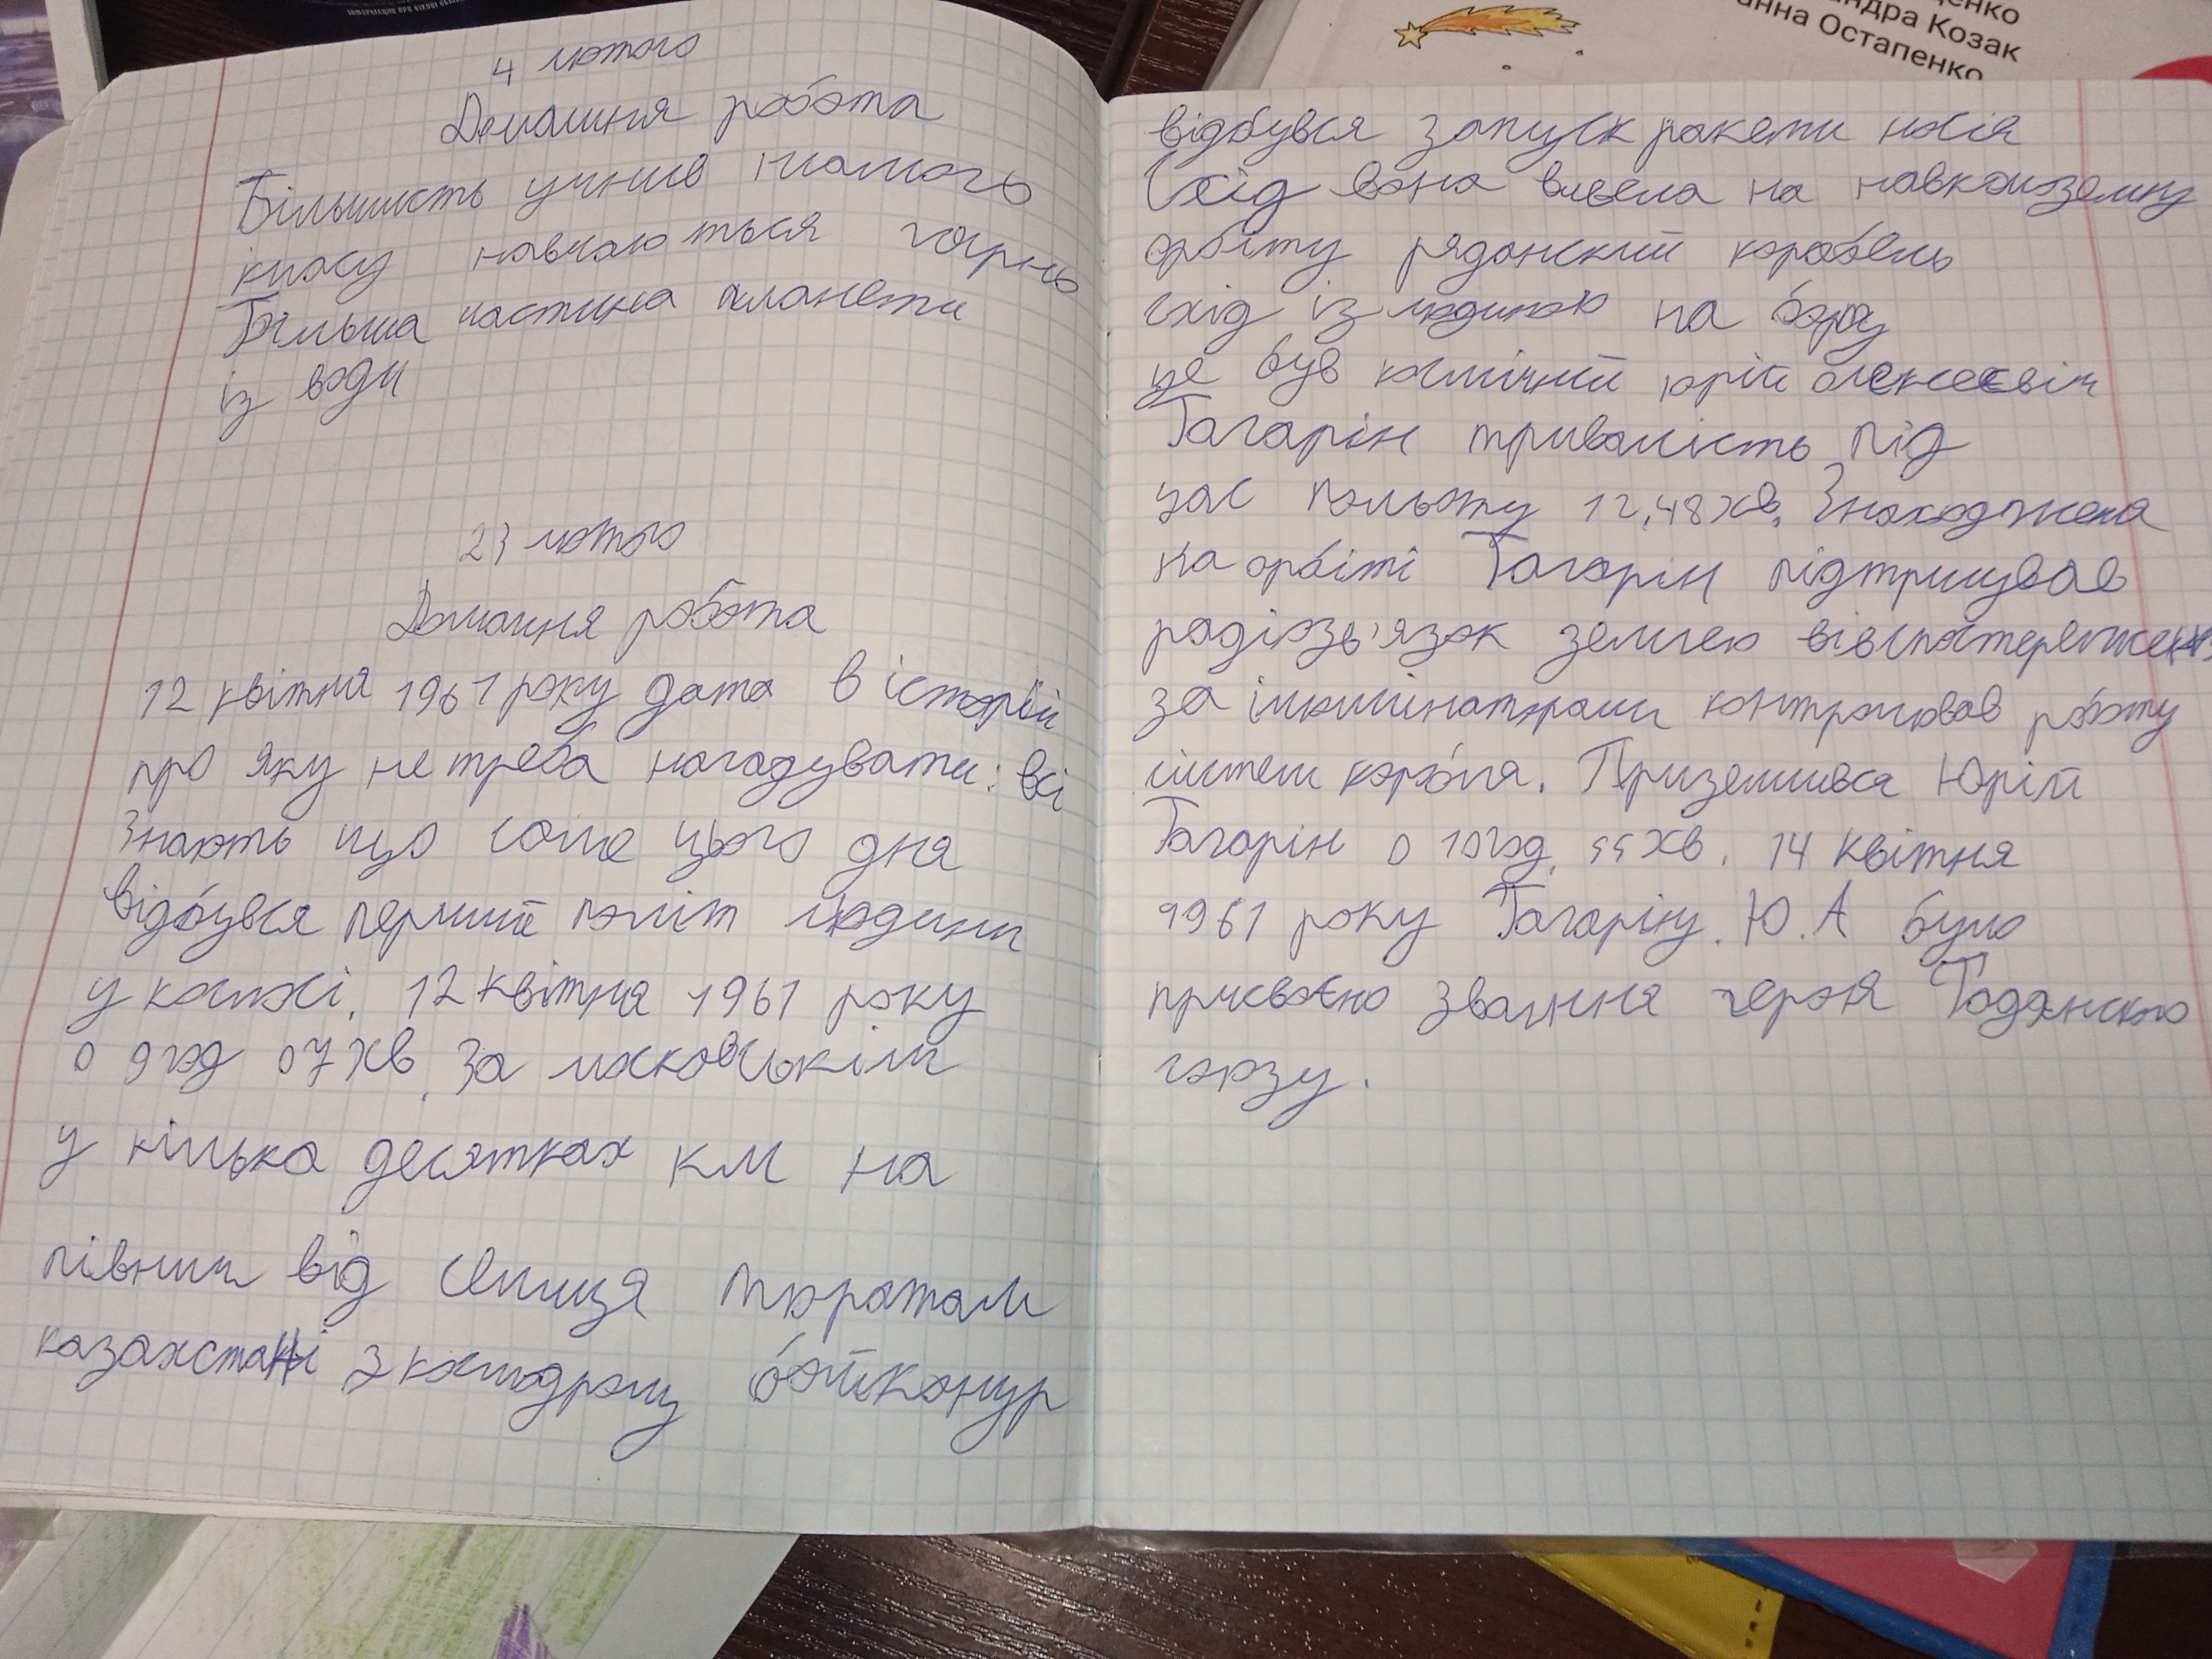 4 лютого
Домашня робота
Більшисть учнив нашого
класу навчаються гарно
Більша частина планети
із води
23 лютого
Домашня робота
12 квітня 1961 року дата в історій
про яку не треба нагадувати: всі
знають що саме цього дня
відбувся перший політ людини
у космосі. 12 квітня 1961 року
о 9 год 07 хв. за московськім
у кілька десятках км на
північ від селища тюратам
казахстані з космодрому байконур
відбувся запуск ракети носія
Схід вона вивела на навколоземну
орбіту рядянский корабель
схід із людиною на борту
це був космічний юрій олексеєвіч
Гагарін тривалість під
час польоту 12,48 хв. Знаходженя
на орбіті Гагарін підтримував
радіозв'язок землею вів спостереження
за ілюмінаторами контролював роботу
систем корбля. Приземлився Юрій
Гагарін о 10 год. 55 хв. 14 квітня
1961 року Гагаріну. Ю.А було
присвоєно звання героя Радянского
союзу.
щенко
ндра Козак
анна Остапенко